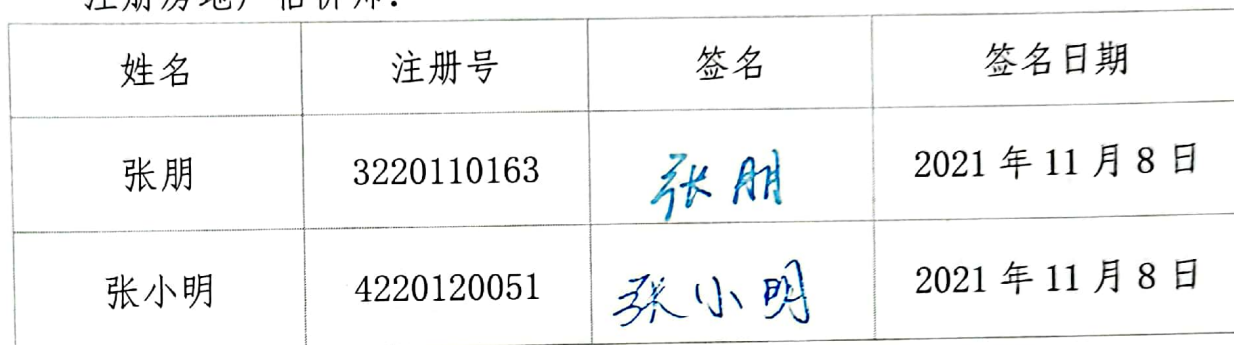 注册房地产估价师：
姓名 注册号 签名 签名日期
张朋 3220110163 张朋 2021年11月8日
张小明 4220120051 张小明 2021年11月8日